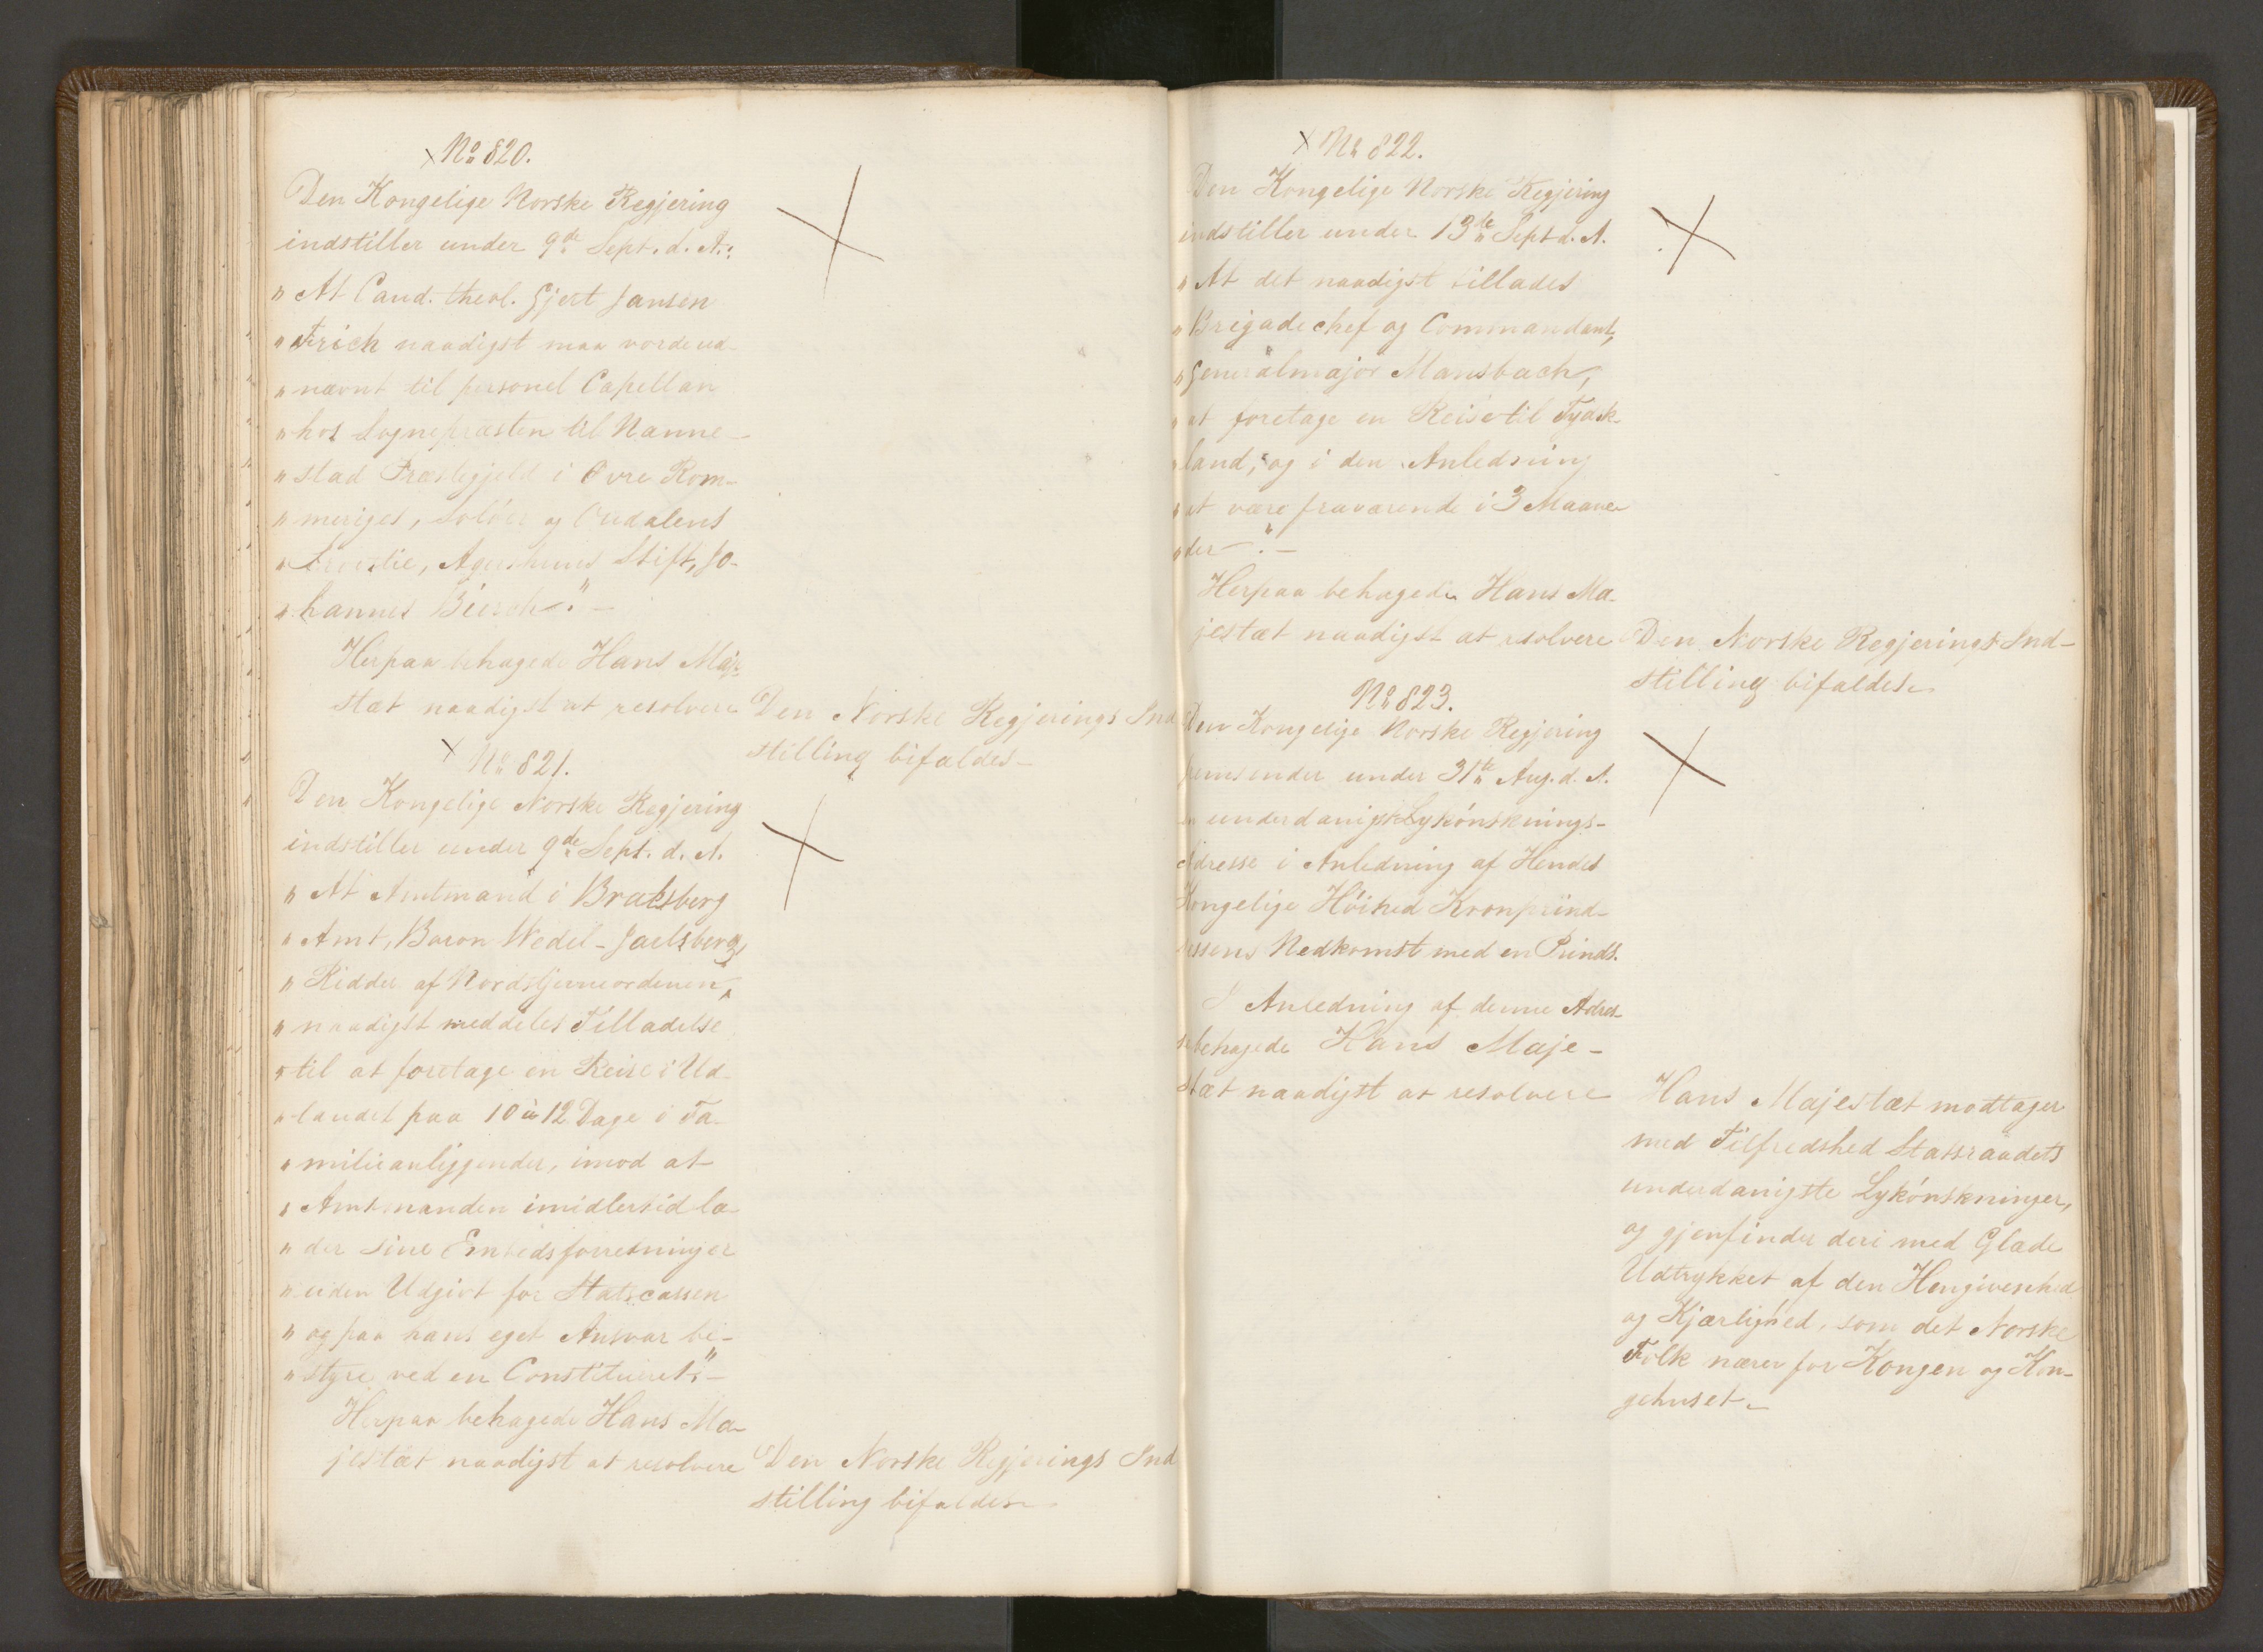 No 820.
Den Kongelige Norske Regjering
indstiller under 9de Sept. d. A.:
" At Cand. theol. Gjert Jansen
" Frich naadigst maa vorde ud-
" nævnt til personel Capellan
" hos Sognepræsten til Nanne-
" stad Præstegjeld i Øvre Rom-
" meriges, Solöer og Oudalens
" Provstie, Agershuus Stift, Jo-
" hannes Biersch". -
Herpaa behagede Hans Maje-
stæt naadigst at resolvere
Den Norske Regjerings Ind
stilling bifaldes -
No 821.
Den Kongelige Norske Regjering
indstiller under 9de Sept. d. A.
" At Amtmand i Bratsberg
" Amt, Baron Wedel-Jarlsberg,
" Ridder af Nordstjerneordenen,
" naadigst meddeles Tilladelse
" til at foretage en Reise i Ud-
" landet paa 10 à 12 Dage i Fa-
" milieanliggender, imod at
" Amtmanden imidlertid la-
" der sine Embedsforretninger
" uden Udgivt for Statscassen
" og paa hans eget Ansvar be-
" styre ved en Constitueret". -
Herpaa behagede Hans Ma-
jestæt naadigst at resolvere
Den Norske Regjerings Ind
stilling bifaldes -
No 822.
Den Kongelige Norske Regjering
indstiller under 13de Sept d. A.
" At det naadigst tillades
" Brigadechef og Commandant,
" Generalmajor Mansbach,
" at foretage en Reise til Tydsk-
" land, og i den Anledning
" at være fraværende i 3 Maane-
" der". -
Herpaa behagede Hans Ma-
jestæt naadigst at resolvere
Den Norske Regjerings Ind-
stilling bifaldes -
No 823.
Den Kongelige Norske Regjering
fremsender under 31te Aug. d. A.
en underdanigst Lykönsknings-
Adresse i Anledning af Hendes
Kongelige Höihed Kronprind-
sessens Nedkomst med en Prinds.
I Anledning af denne Adres-
se behagede Hans Maje-
stæt naadigst at resolvere
Hans Majestæt modtager
med Tilfredshed Statsraadets
underdanigste Lykönskninger,
og gjenfinder deri med Glæde
Udtrykket af den Hengivenhed
og Kjærlighed, som det Norske
Folk nærer for Kongen og Kon-
gehuset -